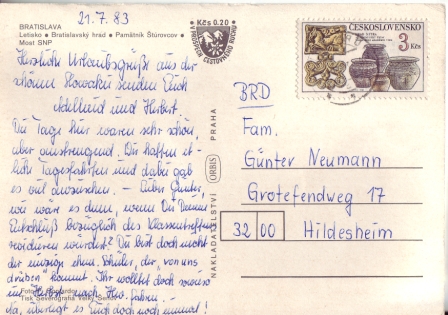 BRATISLAVA
Letisko • Bratislavský hrad • Pamätník Štúrovcov
Most SNP
21.7.83
Kčs 0.20
ČESKOSLOVENSKO
3 Kčs
Herzliche Urlaubsgrüße aus der
schönen Slowakei senden Euch
Adelheid und Herbert.
Die Tage hier waren sehr schön,
aber anstrengend. Wir hatten et-
liche Tagesfahrten und dabei gab
es viel anzusehen. – Lieber Günter,
wie wäre es denn, wenn Du Deinen
Entschluß bezüglich des Klassentreffens
revidieren würdest? Du bist doch nicht
der einzige ehem. Schüler, der "von uns
drüben" kommt. Ihr wolltet doch sowieso
im Herbst nach fahren. –
Na, überlegt es Euch doch noch einmal!
Tisk Severografia
NAKLADATELSTVÍ ORBIS PRAHA
BRD
Fam.
Günter Neumann
Grotefendweg 17
3200 Hildesheim